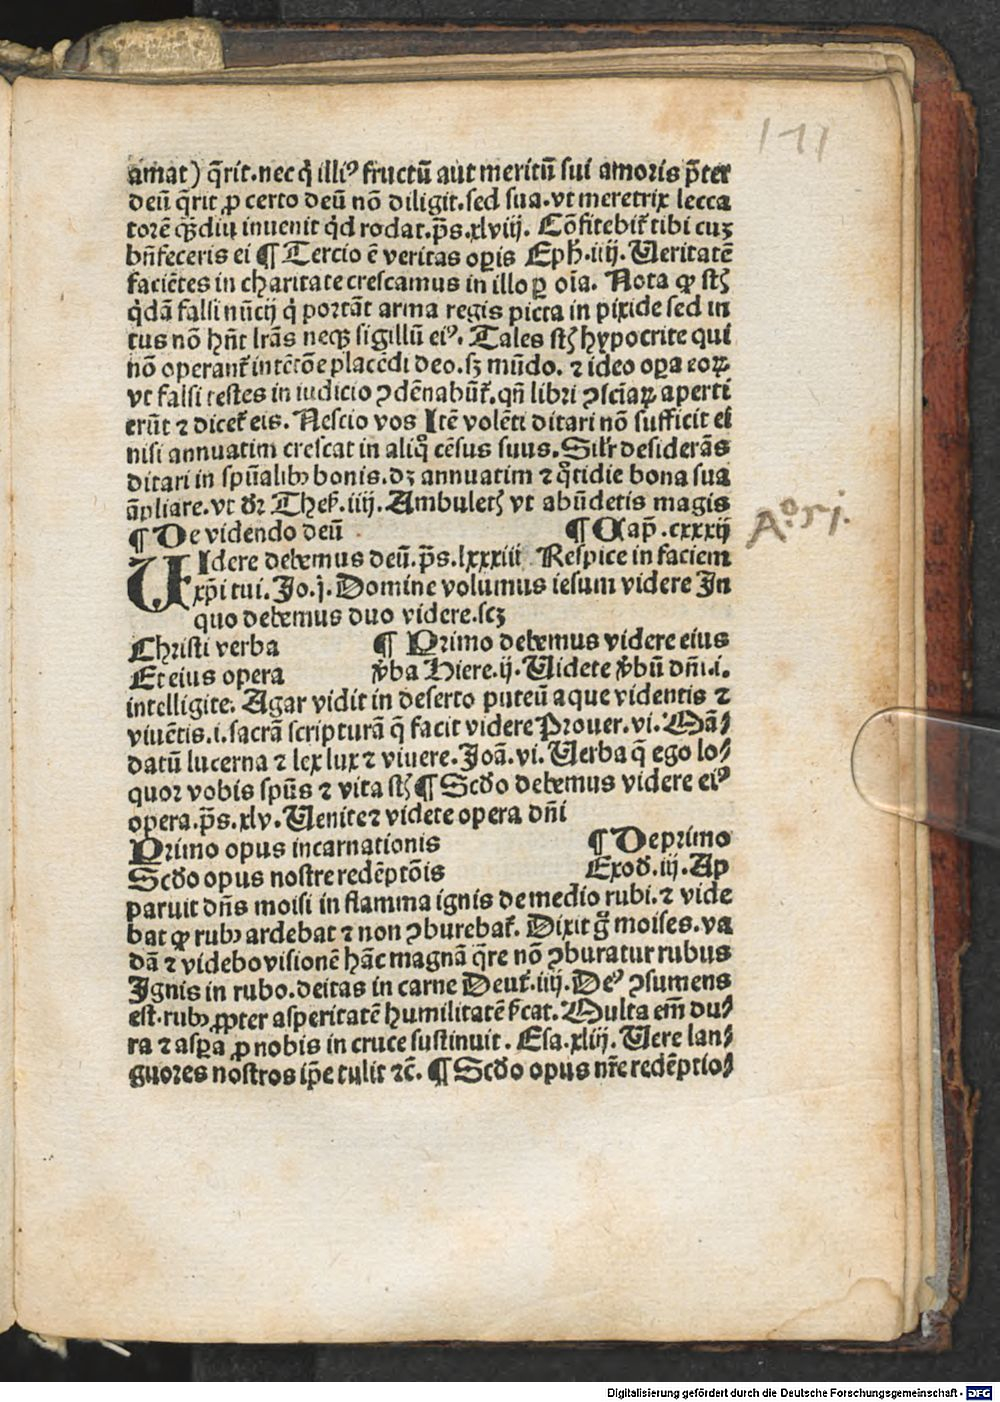 111
amat) q̄rit.nec q̇ illiꝰ fructū aut meritū sui amoris p̄ter
deū q̄rit ꝓ certo deū nō diligit.sed sua.vt meretrix lecca
torē qꝫdiu inuenit qd̓ rodat.p̄s.xlviij. Cōfitebit̃ tibi cuꝫ
bn̄feceris ei ¶ Tercio ē veritas oꝑis Eph̄.iiij.Veritatē
faciētes in charitate crescamus in illo ꝑ oīa. Nota ꝙ st̄
q̇dā falsi nūcij q̇ portāt arma regis picta in pixide sed in
tus nō hn̄t lrās neqꝫ sigillū eiꝰ. Tales st̄ hypocrite qui
nō operant̃ intētōe placēdi deo.sꝫ mūdo. ⁊ ideo oꝑa eoꝝ
vt falsi testes in iudicio ꝯdēnabūt̃.qn̄ libri ꝯsciaꝝ aperti
erūt ⁊ dicet̃ eis. Nescio vos Itē volēti ditari nō sufficit ei
nisi annuatim crescat in aliqͦ cēsus suus. Sil̓r desiderās
ditari in spūalibꝰ bonis.dꝫ annuatim ⁊ qͦtidie bona sua
āpliare.vt dr̄ Thes̃.iiij.Ambulet̄ vt abūdetis magis
¶ De videndo deū ¶ Cap̄.cxxxij
A.º rj.
VIdere debemus deū.p̄s.lxxxiii Respice in faciem
xp̄i tui.Jo.j.Domine volumus iesum videre In
quo debemus duo videre.scꝫ
Christi verba ¶ Primo debemus videre eius
Et eius opera v̓ba Hiere.ij.Videte v̓bū dn̄i.i.
intelligite. Agar vidit in deserto puteū aque videntis ⁊
viuētis.i.sacrā scripturā q̄ facit videre Prouer.vi.Mā⸗
datū lucerna ⁊ lex lux ⁊ viuere.Joā.vi.Verba q̄ ego lo⸗
quor vobis spūs ⁊ vita st̄ ¶ Scd̓o debemus videre eiꝰ
opera.p̄s.xlv.Uenite ⁊ videte opera dn̄i
Primo opus incarnationis ¶ De primo
Scd̓o opus nostre redēptōis Exod̓.iij.Ap
paruit dn̄s moisi in flamma ignis de medio rubi.⁊ vide
bat ꝙ rubꝰ ardebat ⁊ non ꝯburebat̃. Dixit g̊ moises.va
dā ⁊ videbo visionē hāc magnā q̄re nō ꝯburatur rubus
Ignis in rubo.deitas in carne Deut̃.iiij.Deꝰ ꝯsumens
est.rubꝰ ꝓpter asperitatē humilitatē s̓cat.Multa em̄ du⸗
ra ⁊ asꝑa ꝓ nobis in cruce sustinuit. Esa.xliij. Vere lan⸗
guores nostros ip̄e tulit ⁊c̄. ¶ Scd̓o opus nr̄e redēptio⸗
Digitalisierung gefördert durch die Deutsche Forschungsgemeinschaft - DFG